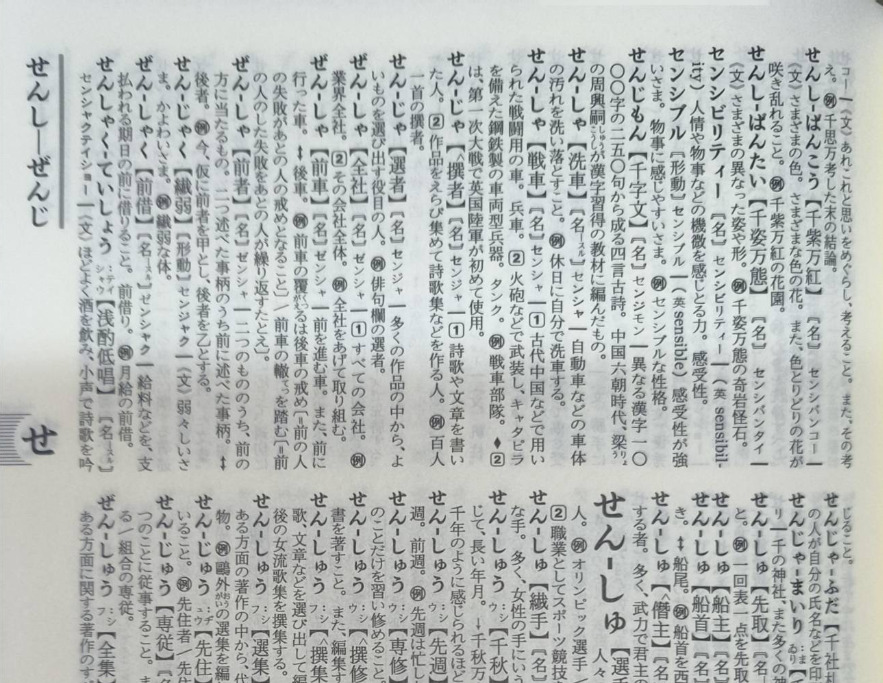 コー｜〈文〉あれこれと思いをめぐらし、考えること。また、その考
え。例千思万考した末の結論。
せんし-ばんこう【千紫万紅】〔名〕 センシバンコー｜
〈文〉さまざまの色。さまざまな色の花。また、色とりどりの花が
咲き乱れること。例千紫万紅の花園。
せんし-ばんたい【千姿万態】〔名〕 センシバンタイ｜
〈文〉さまざまの異なった姿や形。例千姿万態の奇岩怪石。
センシビリティー〔名〕センシビリティー｜(英 sensibil-
ity) 人情や物事などの機微を感じとる力。感受性。
センシブル〔形動〕センシブル｜(英 sensible) 感受性が強
いさま。物事に感じやすいさま。例センシブルな性格。
せんじもん【千字文】〔名〕センジモン｜異なる漢字一〇
〇〇字の二五〇句から成る四言古詩。中国六朝時代、梁りょう
の周興嗣しゅうこうしが漢字習得の教材に編んだもの。
せん-しゃ【洗車】〔名-スル〕センシャ｜自動車などの車体
の汚れを洗い落とすこと。例休日に自分で洗車する。
せん-しゃ【戦車】〔名〕センシャ｜1古代中国などで用い
られた戦闘用の車。兵車。2火砲などで武装し、キャタピラ
を備えた鋼鉄製の車両型兵器。タンク。例戦車部隊。◆2
は、第一次大戦で英国陸軍が初めて使用。
せん-じゃ【^撰者】〔名〕センジャ｜1詩歌や文章を書い
た人。2作品をえらび集めて詩歌集などを作る人。例百人
一首の撰者。
せん-じゃ【選者】〔名〕センジャ｜多くの作品の中から、よ
いものを選び出す役目の人。例俳句欄の選者。
ぜん-しゃ【全社】〔名〕ゼンシャ｜1すべての会社。例
業界全社。2その会社全体。例全社をあげて取り組む。
ぜん-しゃ【前車】〔名〕ゼンシャ｜前を進む車。また、前に
行った車。↕後車。例前車の覆がえるは後車の戒め〔=前の人
の失敗があとの人の戒めとなること〕／前車の轍てつを踏む〔=前
の人のした失敗をあとの人が繰り返すたとえ〕。
ぜん-しゃ【前者】〔名〕ゼンシャ｜二つのもののうち、前の
方に当たるもの。二つ述べた事柄のうち前に述べた事柄。↕
後者。例今、仮に前者を甲とし、後者を乙とする。
せん-じゃく【繊弱】〔形動〕センジャク｜〈文〉弱々しいさ
ま。かよわいさま。例繊弱な体。
ぜん-しゃく【前借】〔名-スル〕ゼンシャク｜給料などを、支
払われる期日の前に借りること。前借り。例月給の前借。
せんしゃく-ていしょう シャク‥テイシャウ【浅酌低唱】〔名-スル〕
センシャクテイショー｜〈文〉ほどよく酒を飲み、小声で詩歌を吟
じること。
せんじゃ-ふだ【千社札
の人が自分の氏名などを印
せんじゃ-まいり ‥まゐり【
り｜千の神社、また多くの神
せん-しゅ【先取】〔名
と。例一回表一点を先取
せん-しゅ【船主】〔名〕
せん-しゅ【船首】〔名〕
き。↕船尾。例船首を西
せん-しゅ【^僭主】〔名
する者。多く、武力で君主の
せん-しゅ【選手
人々
人。例オリンピック選手／
2職業としてスポーツ競技
せん-しゅ【繊手】〔名〕
な手。多く、女性の手にいう
せん-しゅう ‥シウ【千秋】
じて、長い年月。→千秋万
千年のように感じられるほど
せん-しゅう ‥シウ【先週】
週。前週。例先週は忙し
せん-しゅう ‥シウ【専修】
のことだけを習い修めること
せん-しゅう ‥シウ【撰修
書を著すこと。また、編集す
せん-しゅう ‥シフ【撰集
歌、文章などを選び出して編
後の女流歌集を撰集する。
せん-しゅう ‥シフ【選集】
ある方面の著作の中から、代
物。例鷗外おうがいの選集を編
せん-じゅう ‥ヂュウ【先住】
いること。例先住者／先住
せん-じゅう【専従】〔名
つのことに従事すること。ま
る／組合の専従。
ぜん-しゅう ‥シフ【全集】
ある方面に関する著作のす
せんし―ぜんじ
せ